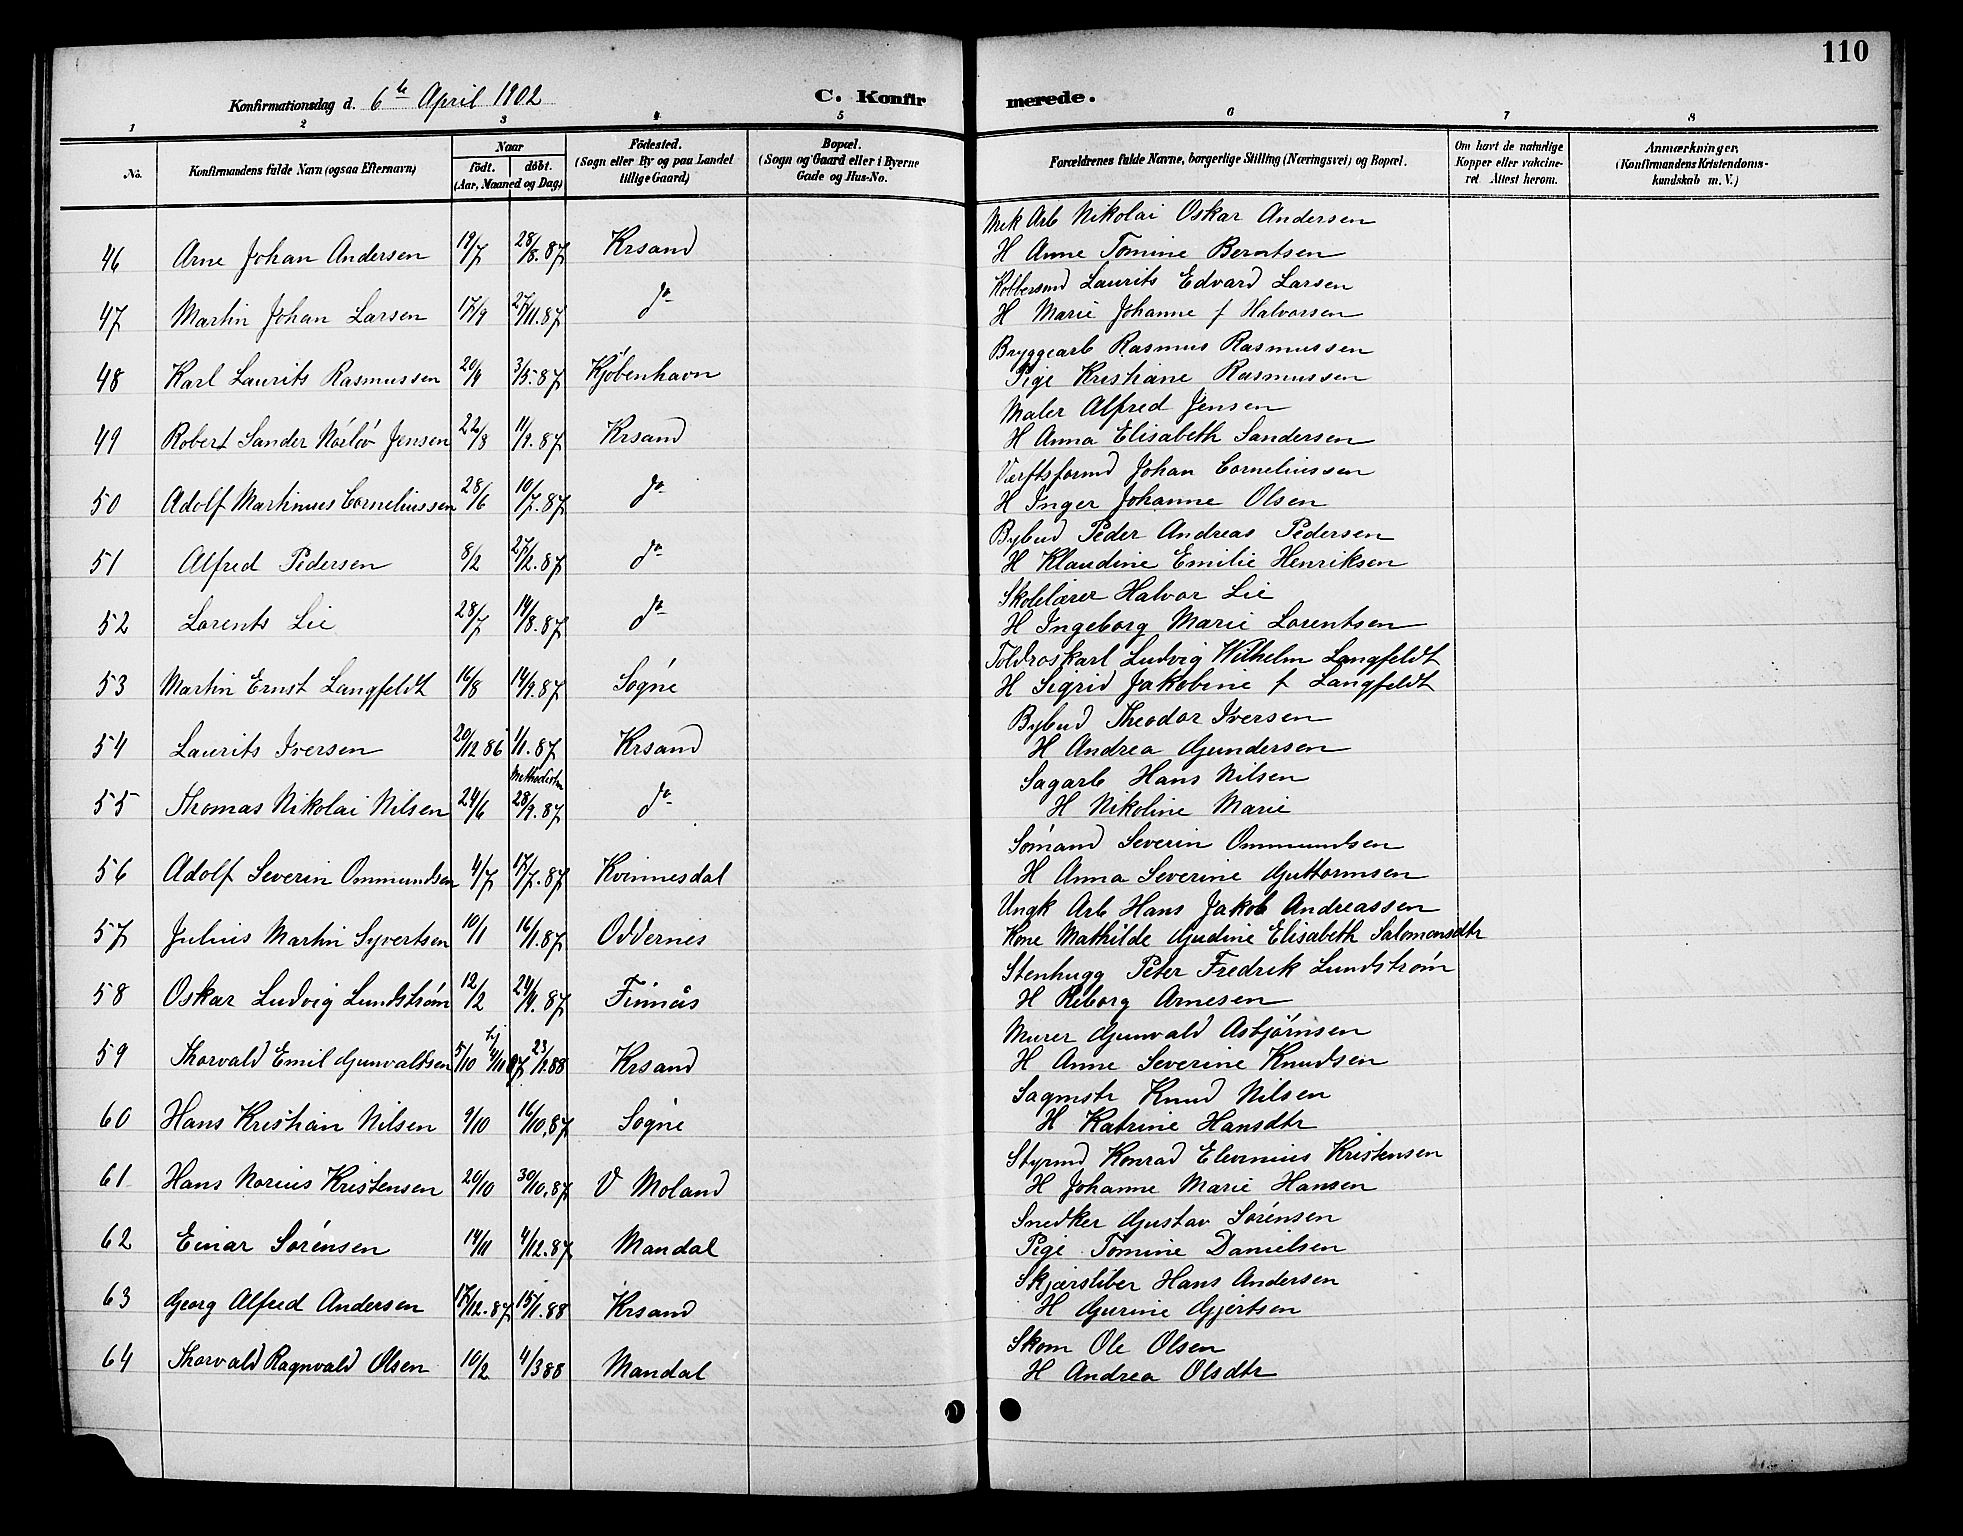 110
Konfirmationsdag d. 6te April 1902 C. Konfirmerede.
1 2 3 4 5 6 7 8
No. Konfirmandens fulde Navn (ogsaa Efternavn) Naar født. døbt. (Aar, Maaned og Dag) Fødested. (Sogn eller By og paa Landet tillige Gaard) Bopæl. (Sogn og Gaard eller i Byerne Gade og Hus-No. Forældrenes fulde Navne, borgerlige Stilling (Næringsvei) og Bopæl. Om havt de naturlige Kopper eller vakcineret. Attest herom. Anmærkninger. (Konfirmandens Kristendomskundskab m. V.)
46 Arne Johan Andersen 19/7 28/8.87 Krsand Mek Arb Nikolai Oskar Andersen
H Anne Tomine Berntsen
47 Martin Johan Larsen 17/9 27/11.87 do Kobbersmd Laurits Edvard Larsen
H Marie Johanne f Halvorsen
48 Karl Laurits Rasmussen 20/4 3/5-87 Kjøbenhavn Bryggearb Rasmus Rasmussen
Pige Kristiane Rasmussen
49 Robert Sander Jensen 22/8 11/9.87 Krsand Maler Alfred Jensen
H Anna Elisabeth Sandersen
50 Adolf Martinius Corneliussen 28/6 10/7.87 do Værftsformd Johan Corneliussen
H Inger Johanne Olsen
51 Alfred Pedersen 8/2 27/2.87 do Bybud Peder Andreas Pedersen
H Klaudine Emilie Henriksen
52 Lorents Lie 28/7 14/8.87 do Skolelærer Halvor Lie
H Ingeborg Marie Lorentsen
53 Martin Ernst Langfeldt 16/8 14/9.87 Søgne Toldroskarl Ludvig Wilhelm Langfeldt
H Sigrid Jakobine f Langfeldt
54 Laurits Iversen 20/12 86 1/1.87 Krsand Bybud Theodor Iversen
H Andrea Gundersen
55 Thomas Nikolai Nilsen 24/6 28/9.87 do Sagarb Hans Nilsen
H Nikoline Marie
56 Adolf Severin Ommundsen 4/7 17/7.87 Kvinnesdal Sømand Severin Ommundsen
H Anna Severine Guttormsen
57 Julius Martin Syvertsen 10/1 16/1.87 Oddernes Ungk Arb Hans Jakob Andreassen
Kone Mathilde Gudine Elisabeth Salomonsdtr
58 Oskar Ludvig Lundstrøm 12/2 24/4.87 Finnås Stenhugg Peter Fredrik Lundstrøm
H Reborg Arnesen
59 Thorvald Emil Gunvaldsen 5/10 hj 9/10 87 23/1.88 Krsand Murer Gunvald Asbjørnsen
H Anne Severine Knudsen
60 Hans Kristian Nilsen 9/10 16/10.87 Søgne Sagmstr Knud Nilsen
H Katrine Hansdtr
61 Hans Norius Kristensen 20/10 30/10.87 V Moland Styrmd Konrad Elevinius Kristensen
H Johanne Marie Hansen
62 Einar Sørensen 14/11 4/12.87 Mandal Snedker Gustav Sørensen
Pige Tomine Danielsen
63 Georg Alfred Andersen 17/12.87 15/1.88 Krsand Skjærsliber Hans Andersen
H Gurine Gjertsen
64 Thorvald Ragnvald Olsen 10/2 4/3 88 Mandal Skom Ole Olsen
H Andrea Olsdtr